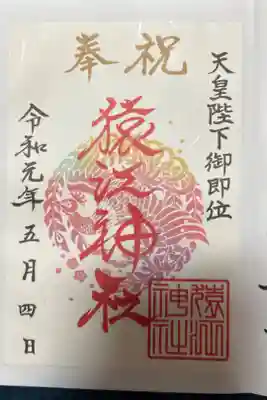 奉祝
天皇陛下御即位
猿江神社
猿江
神社
令和元年五月四日